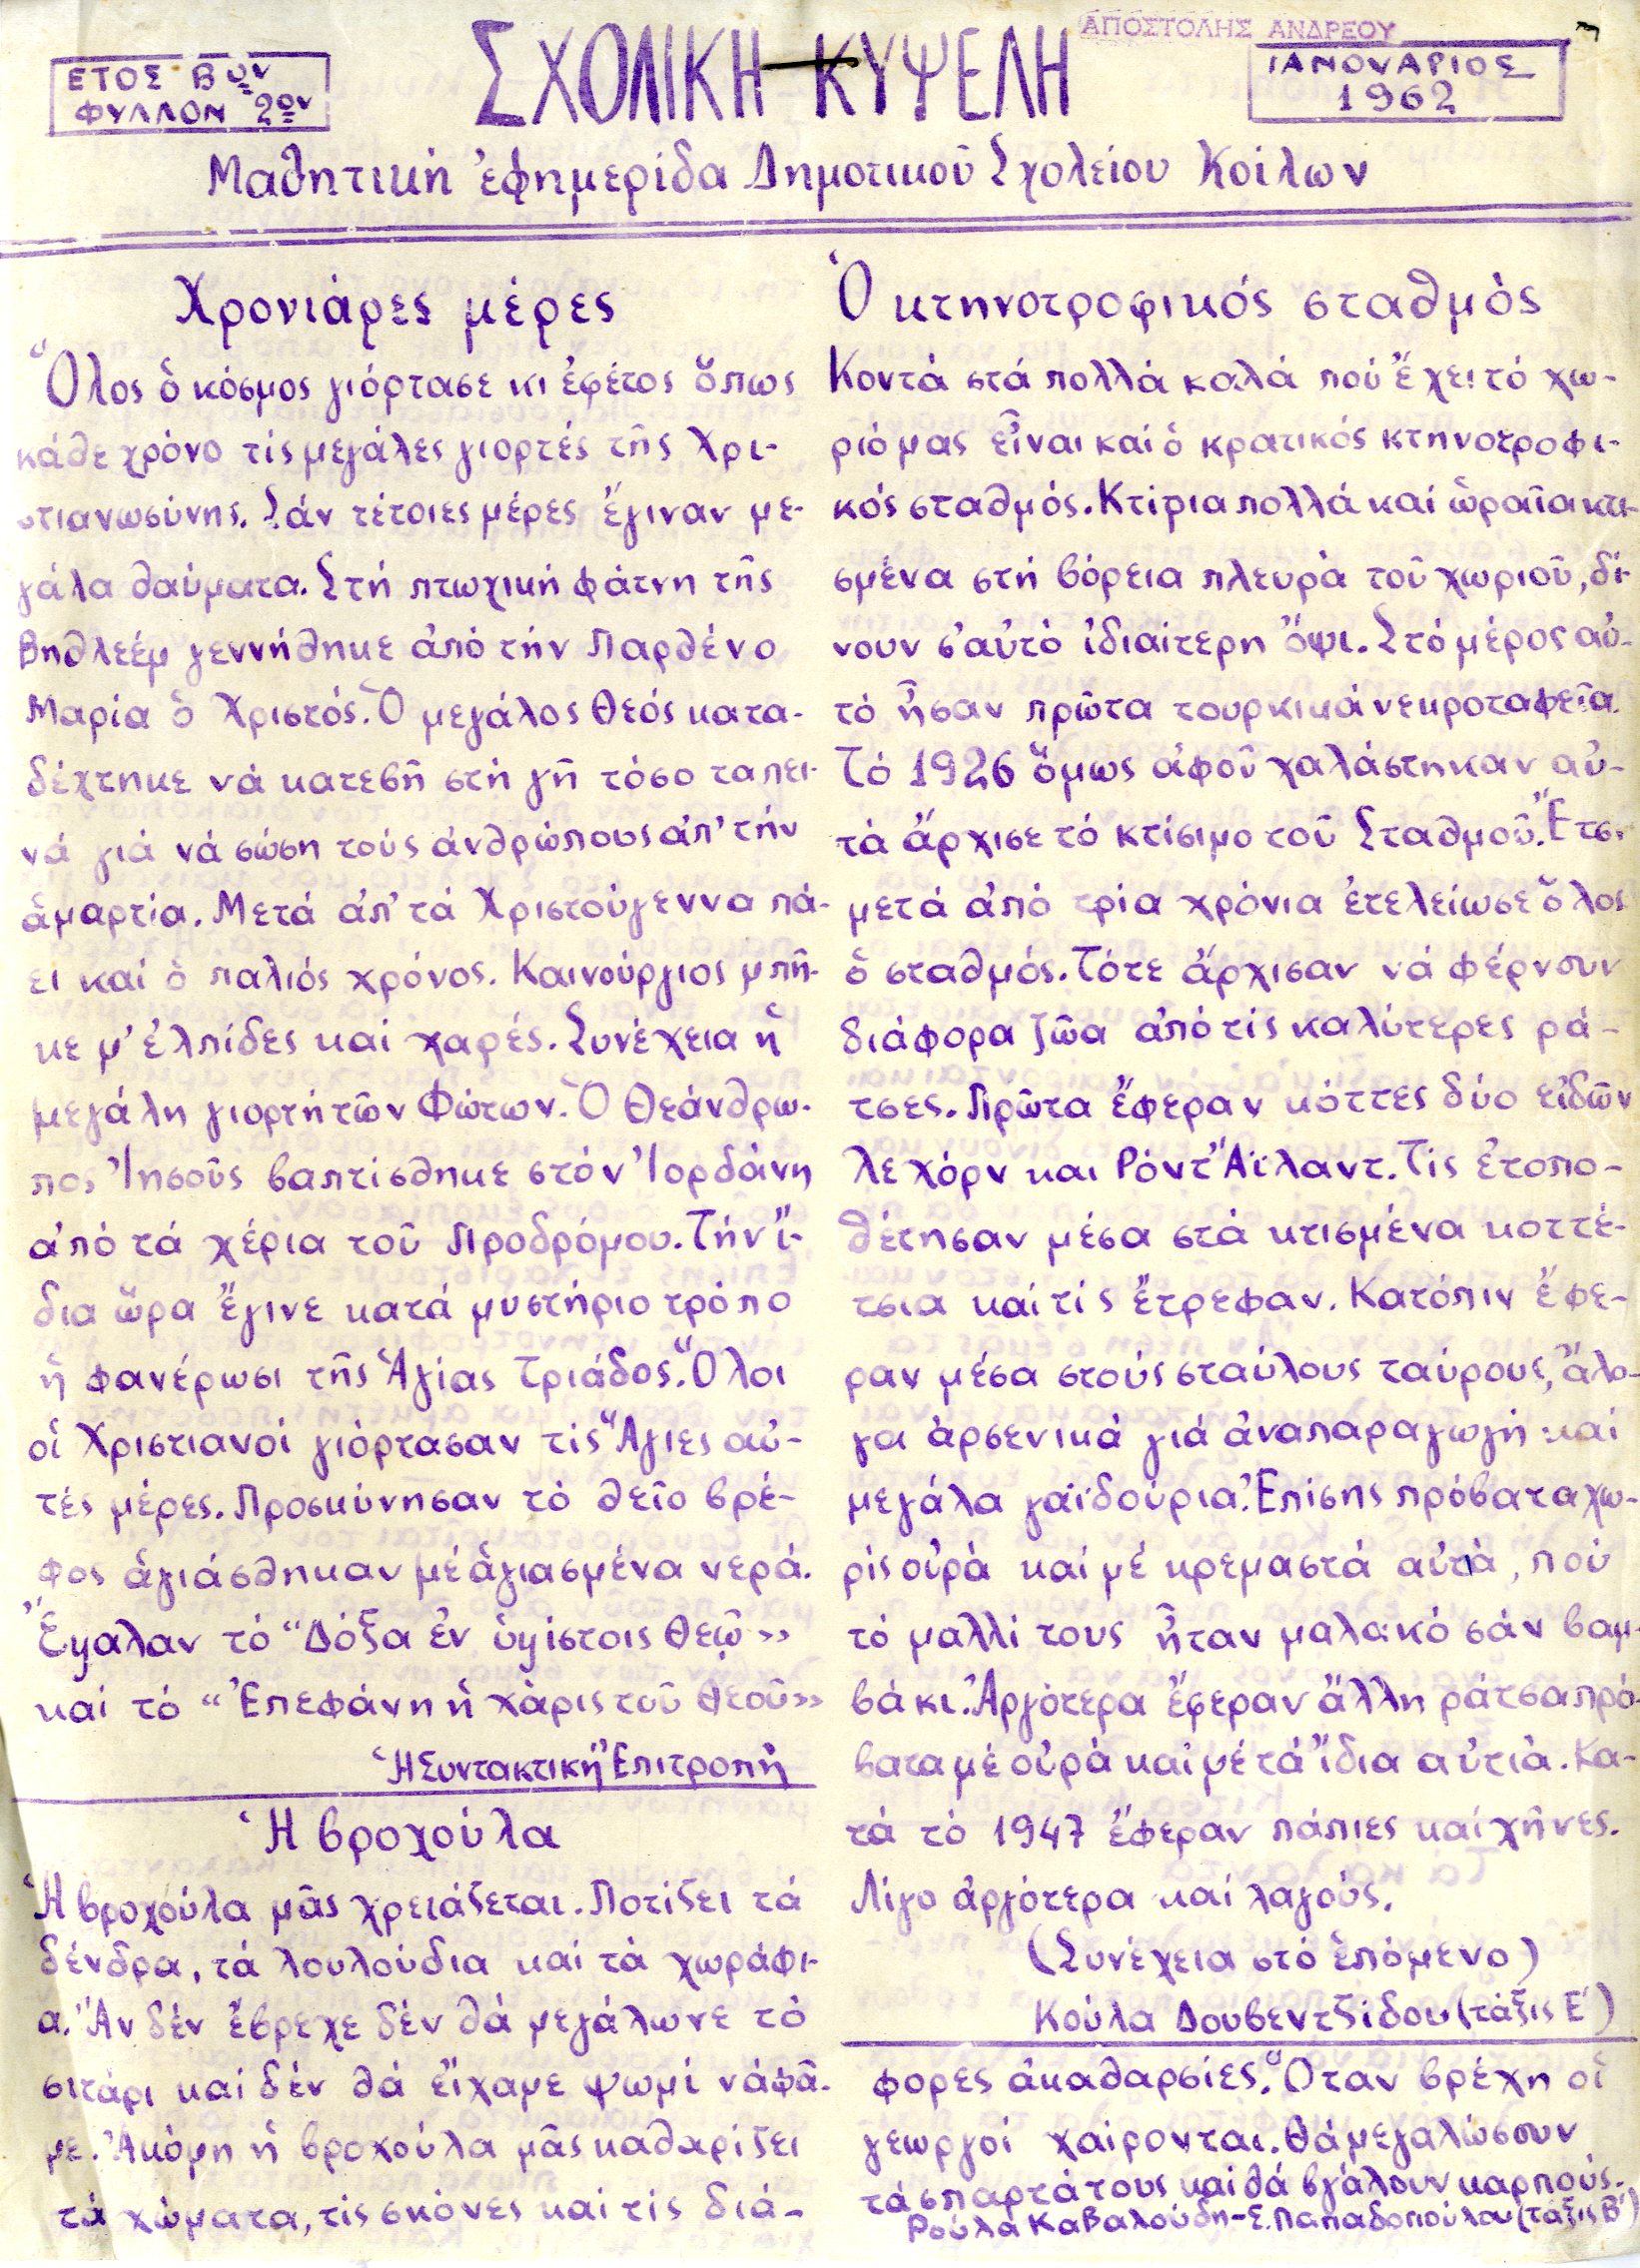 ΑΠΟΣΤΟΛΗΣ ΑΝΔΡΕΟΥ
ΕΤΟΣ Βον
ΦΥΛΛΟΝ 2ον
ΣΧΟΛΙΚΗ ΚΥΨΕΛΗ
ΙΑΝΟΥΑΡΙΟΣ
1962
Μαθητική ἐφημερίδα Δημοτικοῦ Σχολείου Κοίλων
Χρονιάρες μέρες
Ὅλος ὁ κόσμος γιόρτασε κι ἐφέτος ὅπως
κάθε χρόνο τίς μεγάλες γιορτές τῆς Χρι-
στιανωσύνης. Σάν τέτοιες μέρες ἔγιναν με-
γάλα θαύματα. Στή πτωχική φάτνη τῆς
Βηθλεέμ γεννήθηκε ἀπό τήν Παρθένο
Μαρία ὁ Χριστός. Ὁ μεγάλος Θεός κατα-
δέχτηκε νά κατεβῆ στή γῆ τόσο ταπει-
νά γιά νά σώση τούς ἀνθρώπους ἀπ' τήν
ἁμαρτία. Μετά ἀπ' τά Χριστούγεννα πά-
ει καί ὁ παλιός χρόνος. Καινούργιος μπῆ-
κε μ' ἐλπίδες καί χαρές. Συνέχεια ἡ
μεγάλη γιορτή τῶν Φώτων. Ὁ Θεάνθρω-
πος Ἰησοῦς βαπτίσθηκε στόν Ἰορδάνη
ἀπό τά χέρια τοῦ Προδρόμου. Τήν ἴ-
δια ὥρα ἔγινε κατά μυστήριο τρόπο
ἡ φανέρωσι τῆς Ἁγίας Τριάδος. Ὅλοι
οἱ Χριστιανοί γιόρτασαν τίς Ἅγιες αὐ-
τές μέρες. Προσκύνησαν τό θεῖο βρέ-
φος ἁγιάσθηκαν μέ ἁγιασμένα νερά.
Ἔψαλαν τό "Δόξα ἐν ὑψίστοις Θεῷ»
καί τό "Ἐπεφάνη ἡ χάρις τοῦ Θεοῦ»
Ἡ Συντακτική Ἐπιτροπή
Ἡ βροχούλα
Ἡ βροχούλα μᾶς χρειάζεται. Ποτίζει τά
δένδρα, τά λουλούδια καί τά χωράφι-
α. Ἄν δέν ἔβρεχε δέν θά μεγάλωνε τό
σιτάρι καί δέν θά εἴχαμε ψωμί νά φᾶ-
με. Ἀκόμη ἡ βροχούλα μᾶς καθαρίζει
τά χώματα, τίς σκόνες καί τίς διά-
Ὁ κτηνοτροφικός σταθμός
Κοντά στά πολλά καλά πού ἔχει τό χω-
ριό μας εἶναι καί ὁ κρατικός κτηνοτροφι-
κός σταθμός. Κτίρια πολλά καί ὡραῖα κτι-
σμένα στή βόρεια πλευρά τοῦ χωριοῦ, δί-
νουν σ' αὐτό ἰδιαίτερη ὄψι. Στό μέρος αὐ-
τό ἦσαν πρῶτα τουρκικά νεκροταφεῖα.
Τό 1926 ὅμως ἀφοῦ χαλάστηκαν αὐ-
τά ἄρχισε τό κτίσιμο τοῦ Σταθμοῦ. Ἔτσι
μετά ἀπό τρία χρόνια ἐτελείωσε ὅλος
ὁ σταθμός. Τότε ἄρχισαν νά φέρνουν
διάφορα ζῶα ἀπό τίς καλύτερες ρά-
τσες. Πρῶτα ἔφεραν κόττες δύο εἰδῶν
λεχόρν και Ρόντ Ἄϊλαντ. Τίς ἐτοπο-
θέτησαν μέσα στά κτισμένα κοττέ-
τσια καί τίς ἔτρεφαν. Κατόπιν ἔφε-
ραν μέσα στούς σταύλους ταύρους, ἄλο-
γα ἀρσενικά γιά ἀναπαραγωγή καί
μεγάλα γαϊδούρια. Ἐπίσης πρόβατα χω-
ρίς οὐρά καί μέ κρεμαστά αὐτιά, πού
τό μαλλί τους ἦταν μαλακό σάν βαμ-
βάκι. Ἀργότερα ἔφεραν ἄλλη ράτσα πρό-
βατα μέ οὐρά καί μέ τά ἴδια αὐτιά. Κα-
τά τό 1947 ἔφεραν πάπιες καί χῆνες.
Λίγο ἀργότερα καί λαγούς.
(Συνέχεια στό ἑπόμενο)
Κούλα Δουβεντζίδου (τάξις Ε΄)
φορες ἀκαθαρσίες. Ὅταν βρέχη οἱ
γεωργοί χαίρονται. Θά μεγαλώσουν
τά σπαρτά τους καί θά βγάλουν καρπούς.
Ρούλα Καβαλούδη - Σ. Παπαδοπούλου (τάξις Β΄)